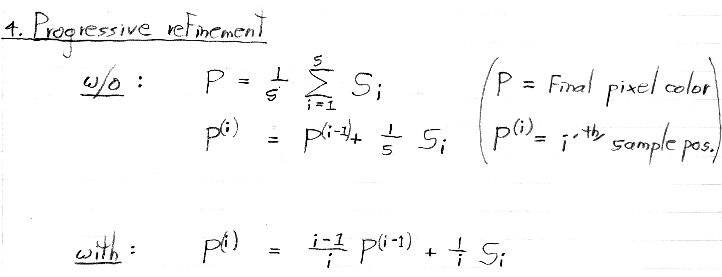 4. Progressive refinement
w/o : P = 1/5 5∑i=1 Si (P = Final pixel color
P(i) = P(i-1) + 1/5 Si P(i) = i'th sample pos.)
with : P(i) = i-1/i P(i-1) + 1/i Si